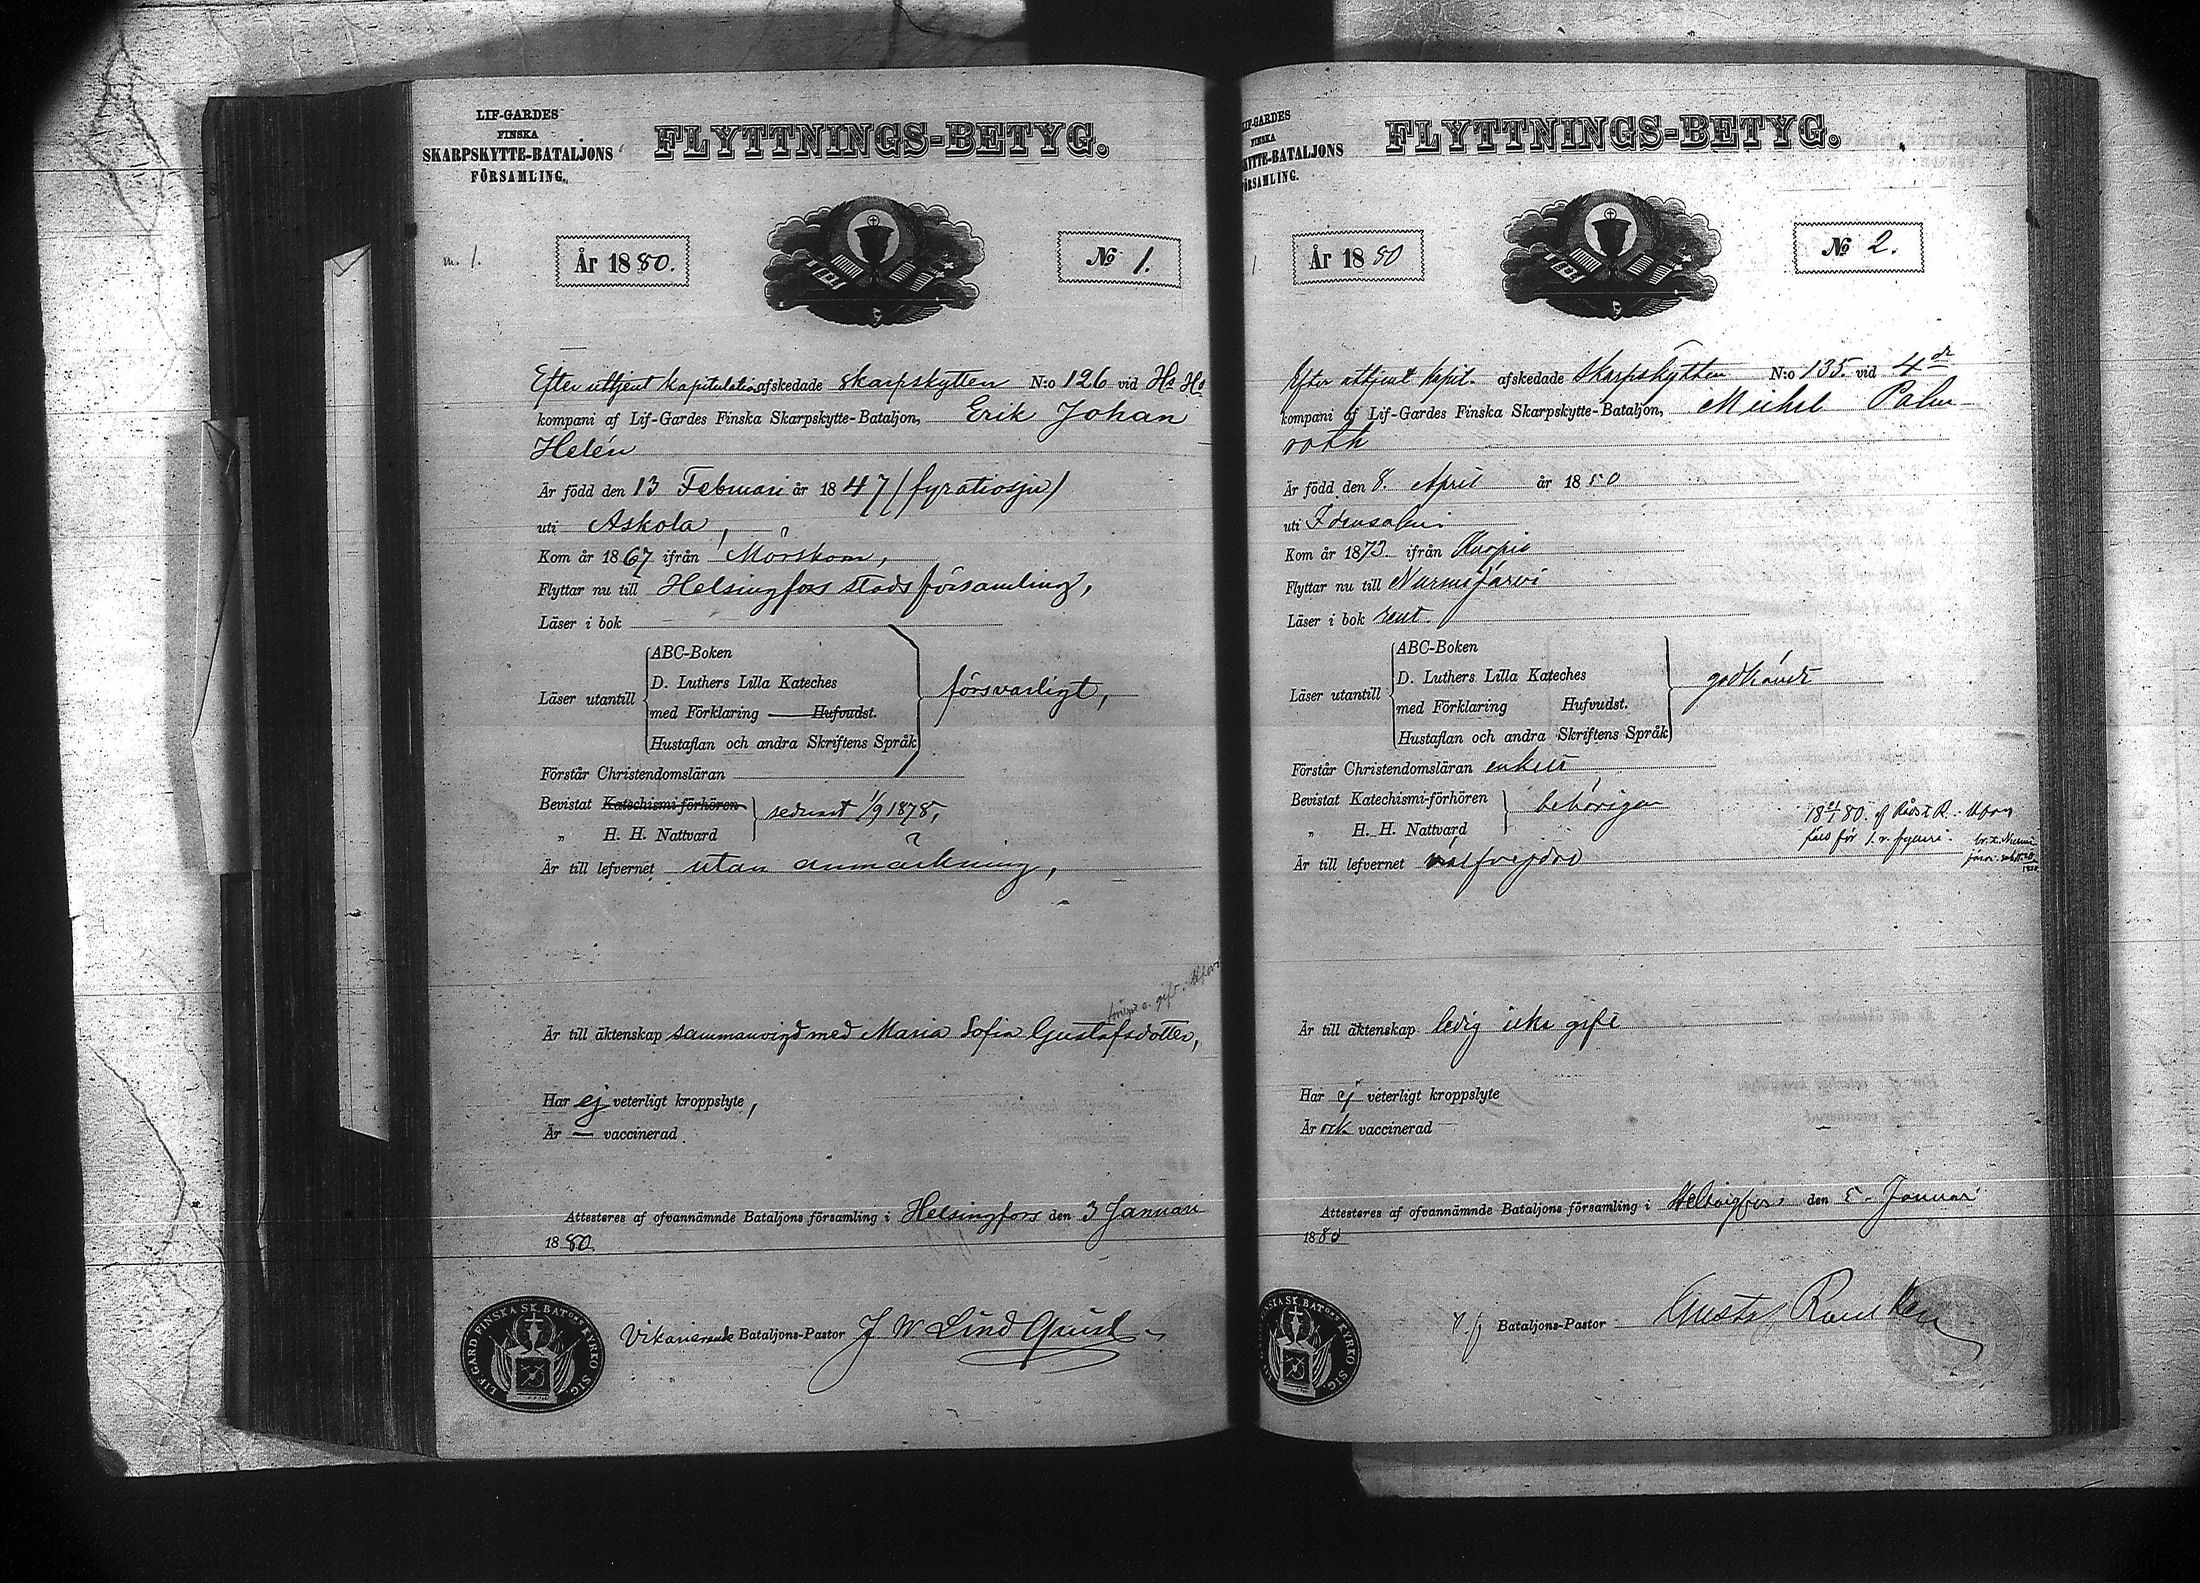 LIF-GARDES
FINSKA
SKARPSKYTTE-BATALJONS
FÖRSAMLING.
FLYTTNINGS-BETYG.
m. 1.
År 1880.
No 1.
Efter uttjent kapitulation afskedade skarpskytten N:o 126 vid Hs Hs
kompani af Lif-Gardes Finska Skarpskytte-Bataljon, Erik Johan
Helén
Är född den 13 Februari år 1847 (fyratiosju)
uti Askola,
Kom år 1867 ifrån Mörskom,
Flyttar nu till Helsingfors stads församling,
Läser i bok
ABC-Boken
D. Luthers Lilla Kateches
Läser utantill
med Förklaring Hufvudst.
försvarligt,
Hustaflan och andra Skriftens Språk
Förstår Christendomsläran
Bevistat Katechismi-förhören
„ H. H. Nattvard
sednast 1/9 1878,
Är till lefvernet utan anmärkning,
Är till äktenskap sammanvigd med Maria Sofia Gustafsdotter,
Har ej veterligt kroppslyte,
Är — vaccinerad
Attesteras af ofvannämnde Bataljons församling i Helsingfors den 3 Januari
1880.
LIF-GARD FINSKA SK. BATONS KYRKO SIG.
Vikarierande Bataljons-Pastor J W Lind Quist
LIF-GARDES
FINSKA
SKYTTE-BATALJONS
FÖRSAMLING.
FLYTTNINGS-BETYG.
År 1880
No 2.
Efter uttjent kapit. afskedade Skarpskytten N:o 135. vid 4de
kompani af Lif-Gardes Finska Skarpskytte-Bataljon, Mickel Palm
roth
Är född den 8. April år 1850
uti Idensalmi
Kom år 1873 ifrån Kuopio
Flyttar nu till Nurmijärvi
Läser i bok rent.
ABC-Boken
D. Luthers Lilla Kateches
Läser utantill
med Förklaring Hufvudst.
godkändt
Hustaflan och andra Skriftens Språk
Förstår Christendomsläran enkelt
Bevistat Katechismi-förhören
„ H. H. Nattvard
behörigen
Är till lefvernet välfrejdad
Är till äktenskap ledig icke gift
Har ej veterligt kroppslyte
Är ock vaccinerad
Attesteras af ofvannämnde Bataljons församling i Helsingfors den 5 Januari
1880
Bataljons-Pastor Gustaf